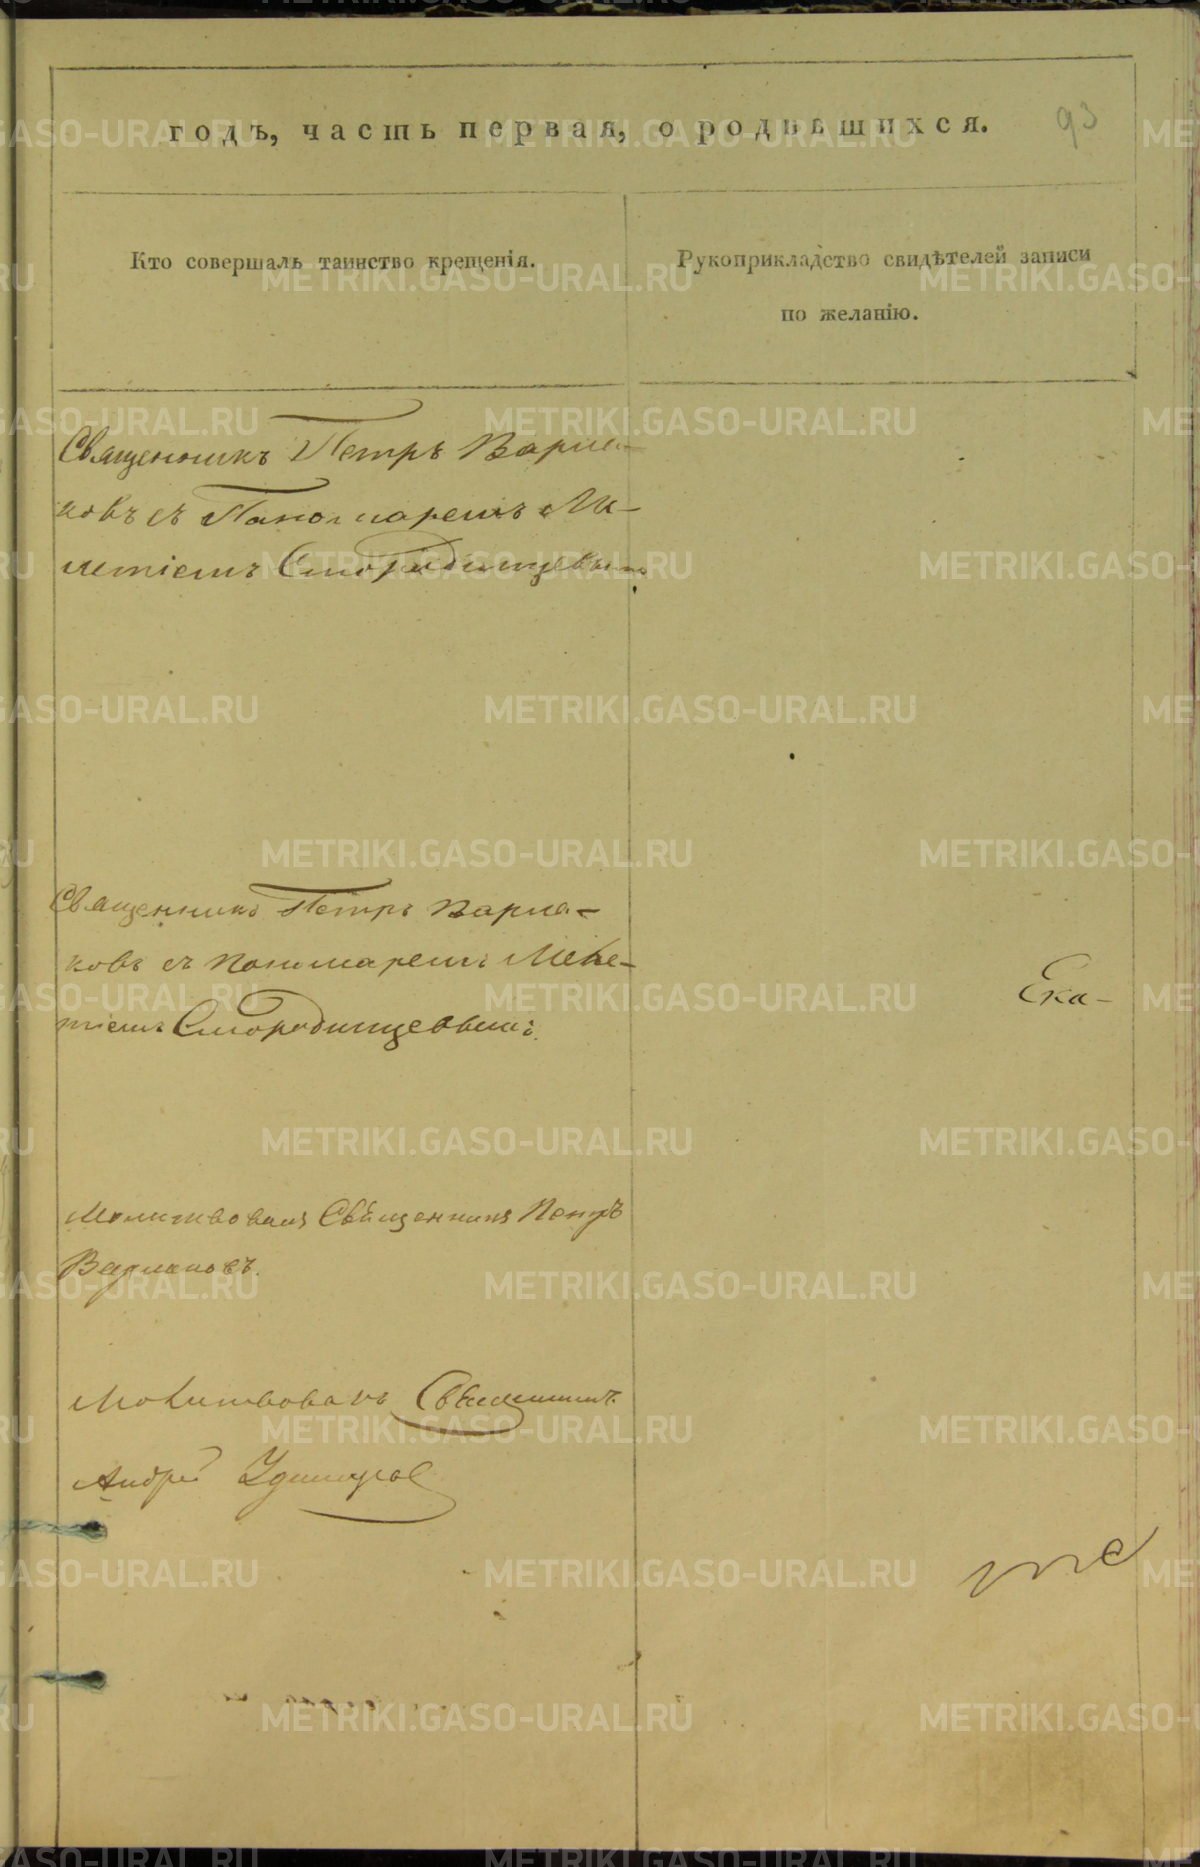 годъ, часть первая, о родившихся.
93
Кто совершалъ таинство крещенія.
Рукоприкладство свидѣтелей записи
по желанію.
Священникъ Петръ Варла-
ковъ съ Пономаремъ Ме-
летіемъ Смородинцевымъ
Священникъ Петръ Варла-
ковъ съ пономаремъ Меле-
тіемъ Смородинцевымъ.
Ека-
Молитвовалъ Священникъ Петръ
Варлаковъ.
Молитвовалъ Священникъ
Андрей
те
METRIKI.GASO-URAL.RU